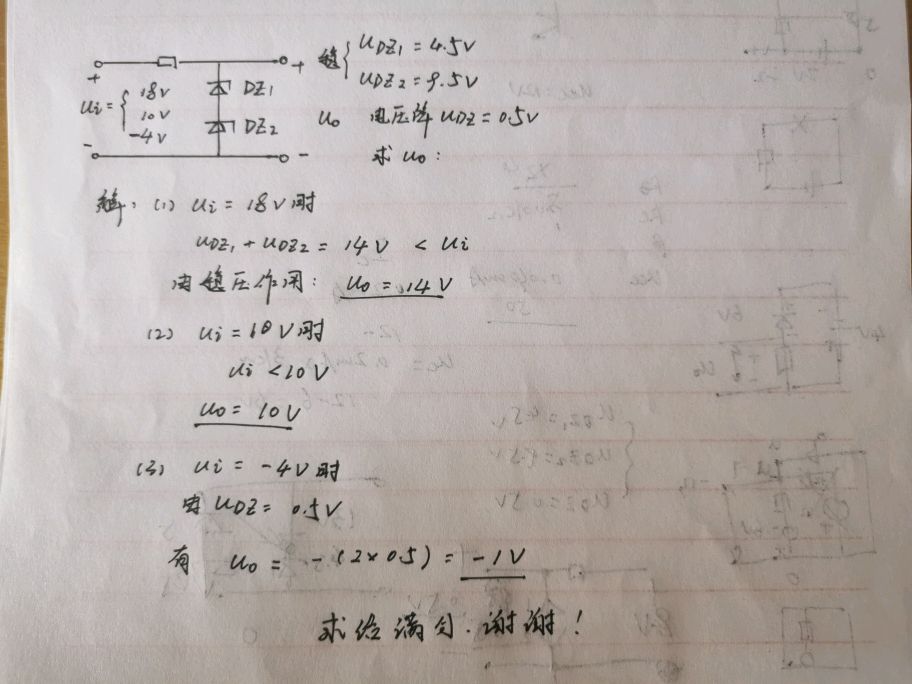 稳 { UDZ1 = 4.5V
UDZ2 = 9.5V
+ +
ui = { 18V 10V -4V
DZ1
DZ2
- -
uo 电压降 UDZ = 0.5V
求 uo:
解: (1) ui = 18V时
UDZ1 + UDZ2 = 14V < ui
由稳压作用: uo = 14V
(2) ui = 10V时
ui < 10V
uo = 10V
(3) ui = -4V时
由 UDZ = 0.5V
有 uo = -(2×0.5) = -1V
求给满分.谢谢!